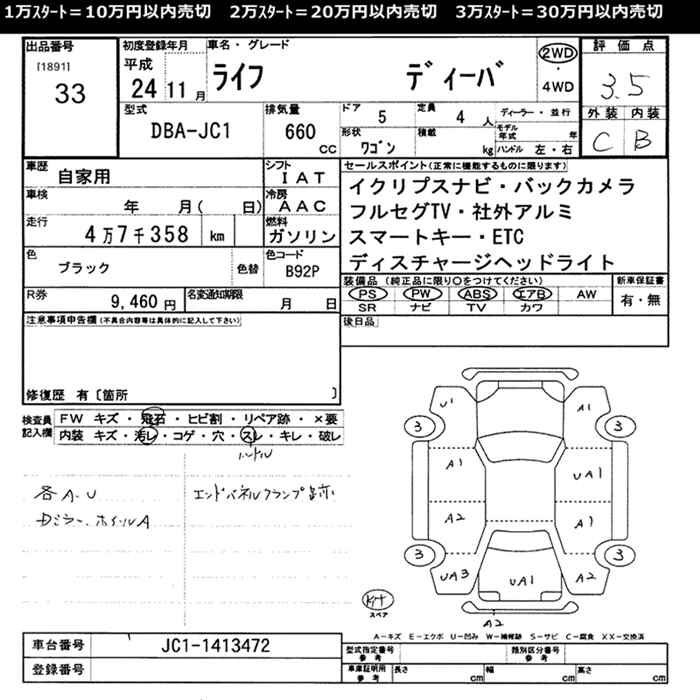 1万ｽﾀｰﾄ=10万円以内売切　2万ｽﾀｰﾄ=20万円以内売切　3万ｽﾀｰﾄ=30万円以内売切
出品番号
[1891]
33
初度登録年月
平成
24 11 月
車名・グレード
ライフ　ディーバ
2WD
・
4WD
評価点
3.5
外装 内装
C B
型式
DBA-JC1
排気量
660 cc
ドア
5
定員
4 人
形状
ワゴン
積載
kg
ディーラー・並行
モデル年式 年
ハンドル 左・右
車歴
自家用
シフト
I AT
車検
年 月( 日)
冷房
AAC
走行
4万7千358 km
燃料
ガソリン
色
ブラック
色替
色コード
B92P
R券
9,460 円
名変通知期限
月 日
セールスポイント(正常に機能するものに限ります)
イクリプスナビ・バックカメラ
フルセグTV・社外アルミ
スマートキー・ETC
ディスチャージヘッドライト
装備品 (純正品に限り○をつけてください)
PS PW ABS エアB AW
SR ナビ TV カワ
新車保証書
有・無
後日品
注意事項申告欄(不具合内容等は具体的に記入して下さい)
修復歴 有〔箇所 〕
検査員
記入欄
FW キズ・飛石・ヒビ割・リペア跡・×要
内装 キズ・汚レ・コゲ・穴・スレ・キレ・破レ
ハンドル
各A・U
Dミラー、ホイルA
エンドパネルクランプ跡
U1
A1
3
3
A1
UA1
A2
A1
3
3
UA3
UA1
A2
A2
キット
スペア
A-キズ E-エクボ U-凹み W-補修跡 S-サビ C-腐食 XX-交換済
車台番号
JC1-1413472
登録番号
型式指定番号
参考
類別区分番号
参考
車庫証明用
参考
長さ cm
幅 cm
高さ cm